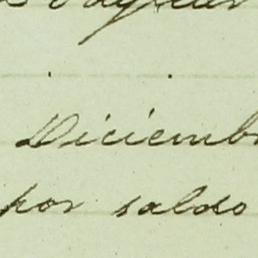 Diciemb
por saldo